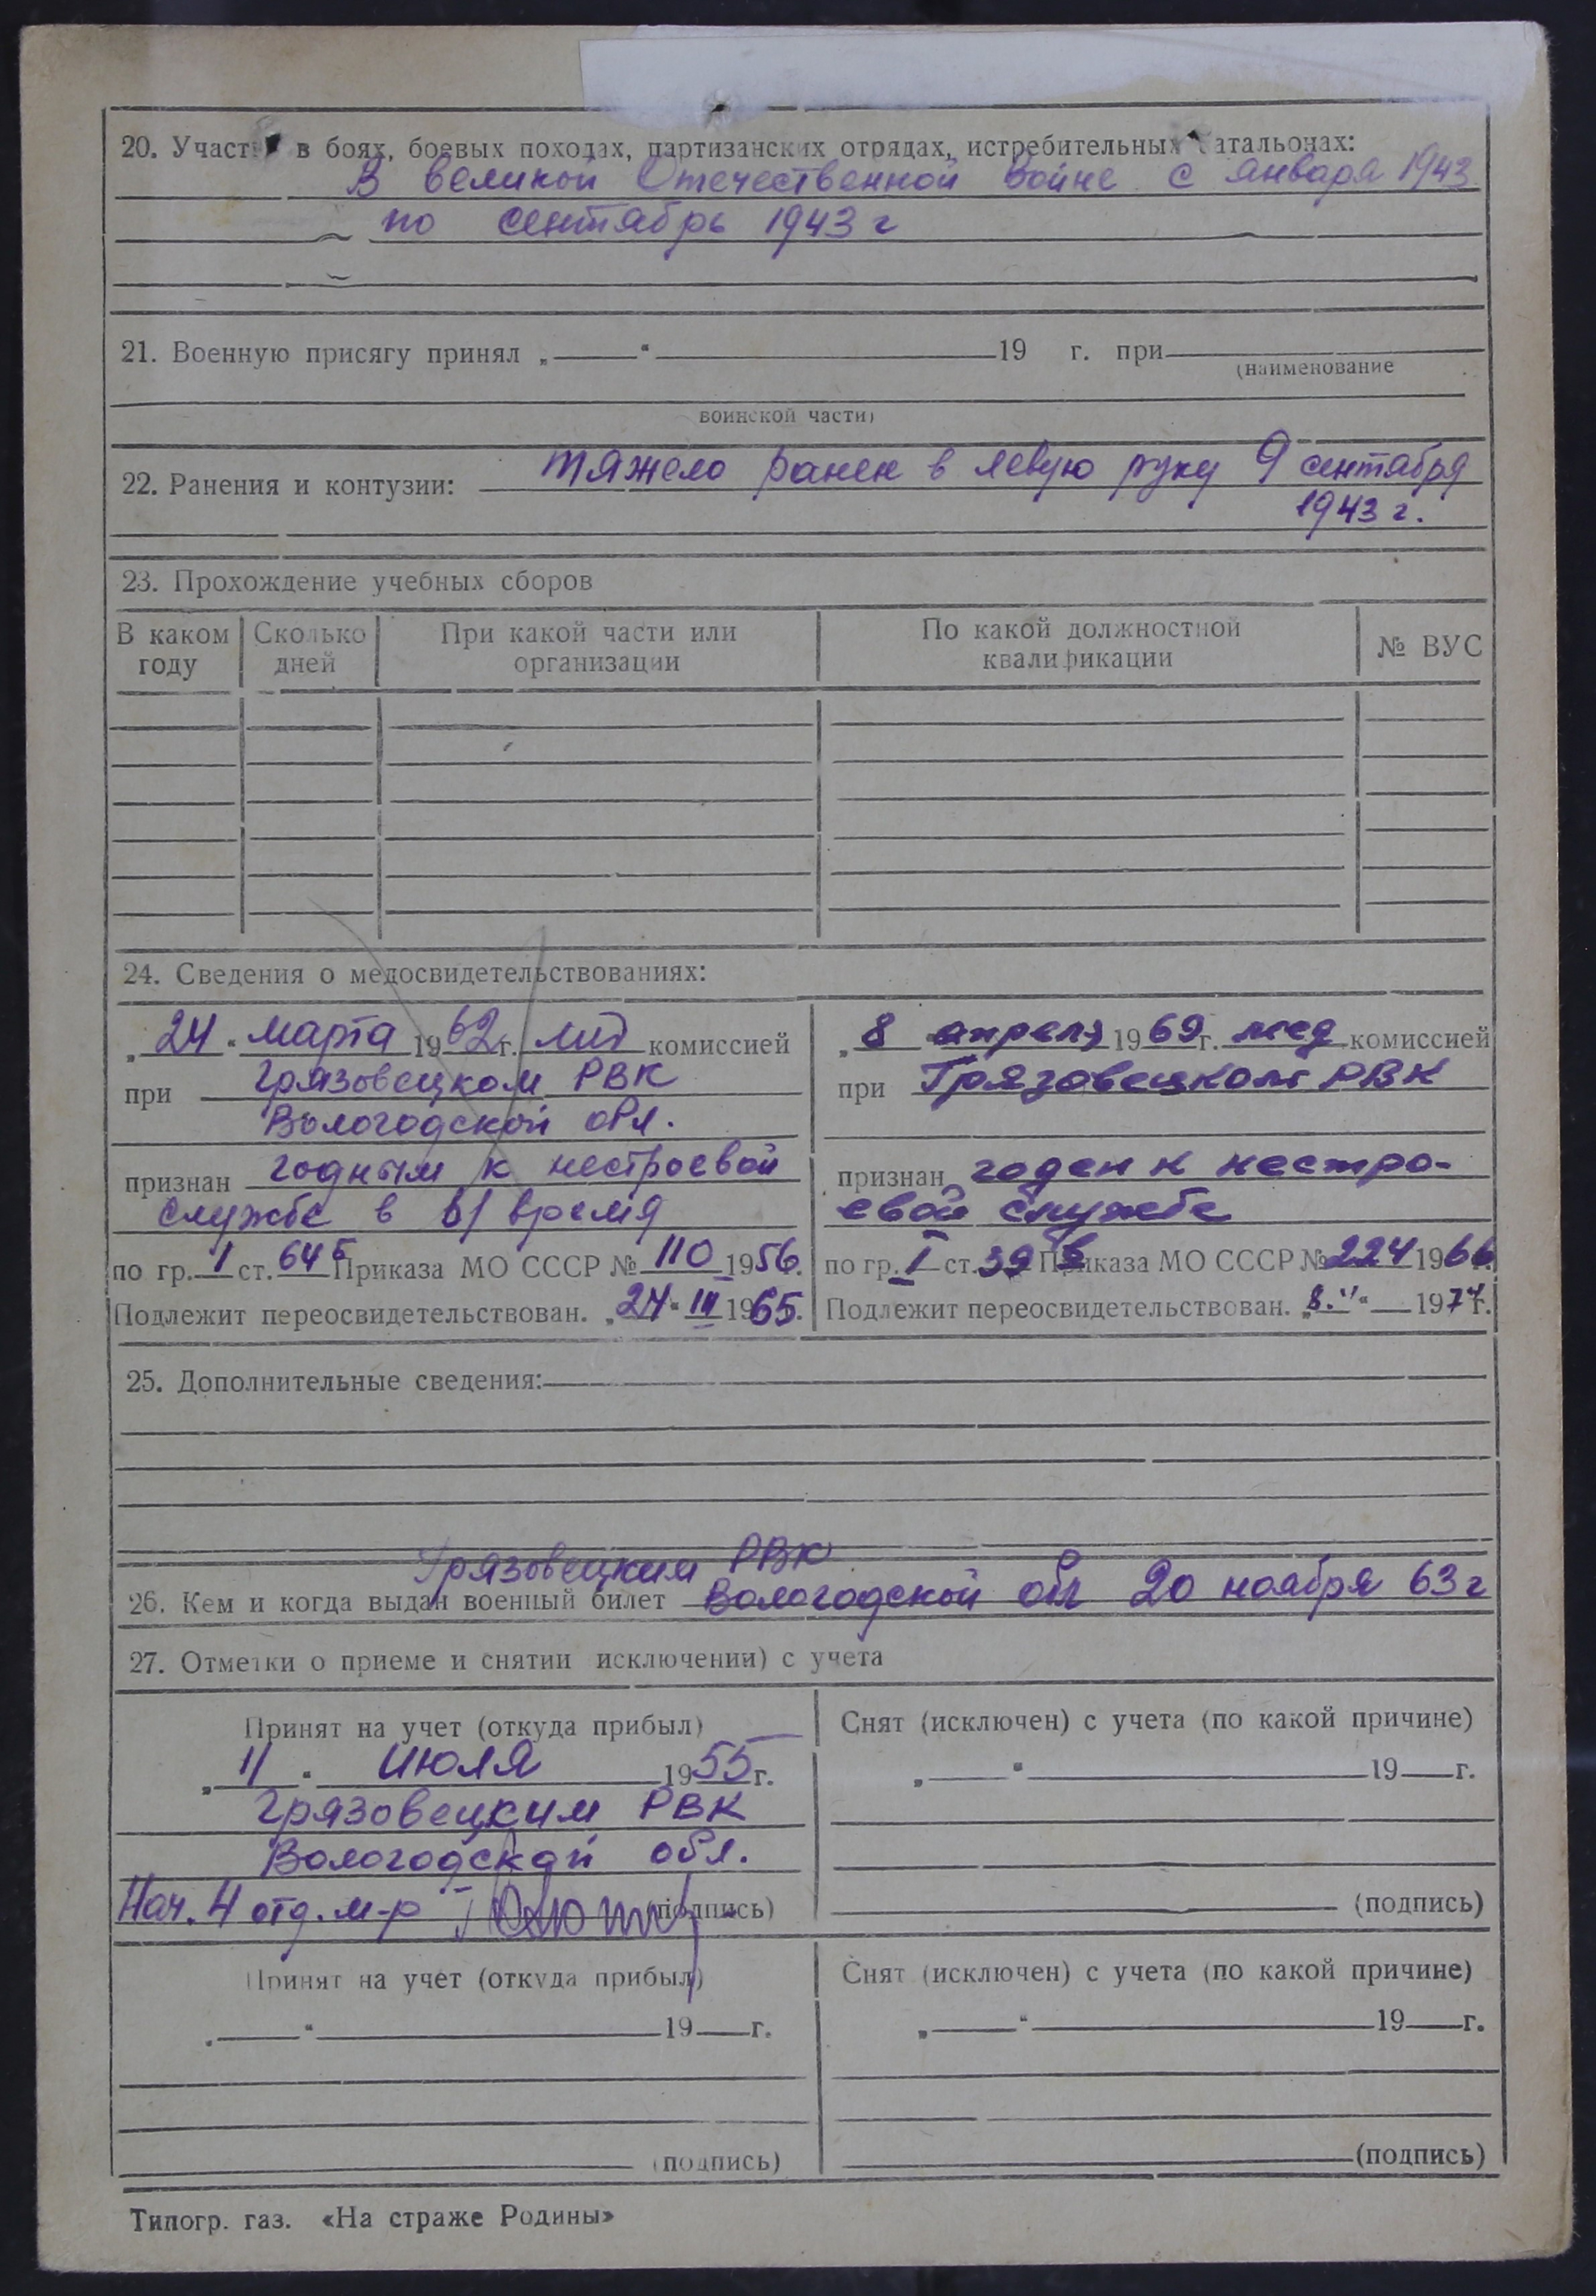 20. Участие в боях, боевых походах, партизанских отрядах, истребительных батальонах:
В великой Отечественной войне с января 1943
по сентябрь 1943 г
21. Военную присягу принял „ “ 19 г. при
(наименование
воинской части)
22. Ранения и контузии: тяжело ранен в левую руку 9 сентября
1943 г.
23. Прохождение учебных сборов
В каком году Сколько дней При какой части или организации По какой должностной квалификации № ВУС
24. Сведения о медосвидетельствованиях:
„24“ марта 1962 г. комиссией
при Грязовецком РВК
Вологодской обл.
признан годным к нестроевой
службе в в/время
по гр. I ст. 64б Приказа МО СССР № 110 1956.
Подлежит переосвидетельствован. „24“ III 1965.
„8 апреля 1969 г. мед комиссией
при Грязовецком РВК
признан годен к нестро-
евой службе
по гр. I ст. 39в Приказа МО СССР № 224 1966 г.
Подлежит переосвидетельствован. „8. “ 1974 г.
25. Дополнительные сведения:
Грязовецким РВК
26. Кем и когда выдан военный билет Вологодской обл 20 ноября 63 г
27. Отметки о приеме и снятии исключении) с учета
Принят на учет (откуда прибыл)
„11“ июля 1955 г.
Грязовецким РВК
Вологодской обл.
Нач. 4 отд. м-р (подпись)
Снят (исключен) с учета (по какой причине)
„ “ 19 г.
(подпись)
Принят на учет (откуда прибыл)
„ “ 19 г.
(подпись)
Снят (исключен) с учета (по какой причине)
„ “ 19 г.
(подпись)
Типогр. газ. «На страже Родины»